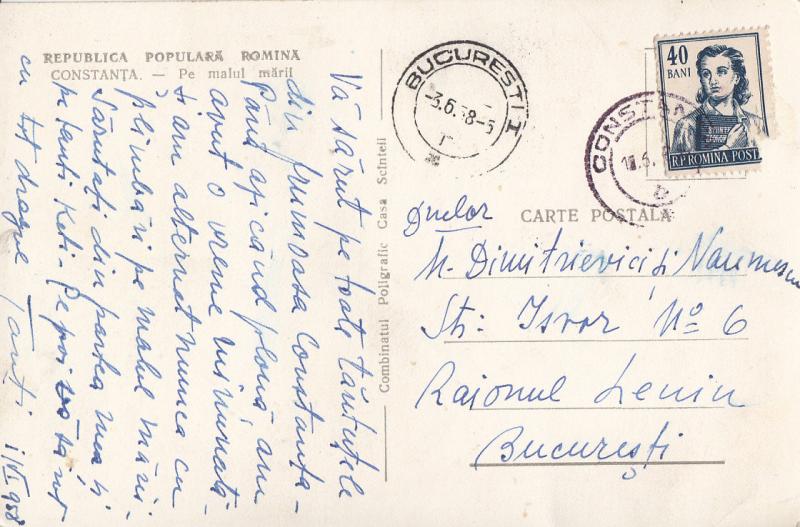 REPUBLICA POPULARĂ ROMINĂ
CONSTANȚA. — Pe malul mării
Vă sărut pe toate tăntuțele
din frumoasa Constanța -
Până ajicând plouă am
avut o vreme minunată -
și am alternat munca cu
plimbări pe malul mării -
Sărutați din partea mea și
pe tanti Keti - Pe voi vă sărut
cu tot dragul Tanți
1/VI 958
Combinatul Poligrafic Casa Scînteii
BUCUREȘTI 1
-3.6.58-5
CONSTA
40
BANI
R.P. ROMINA POSTA
CARTE POSTALA
Dnelor
M. Dimitrievici și Naumescu
Str: Isvor No 6
Raionul Lenin
București